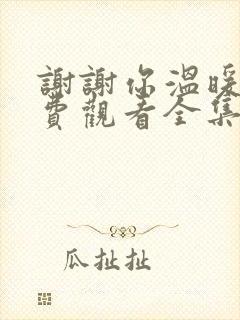 謝謝你溫暖
費觀看全集
瓜扯扯